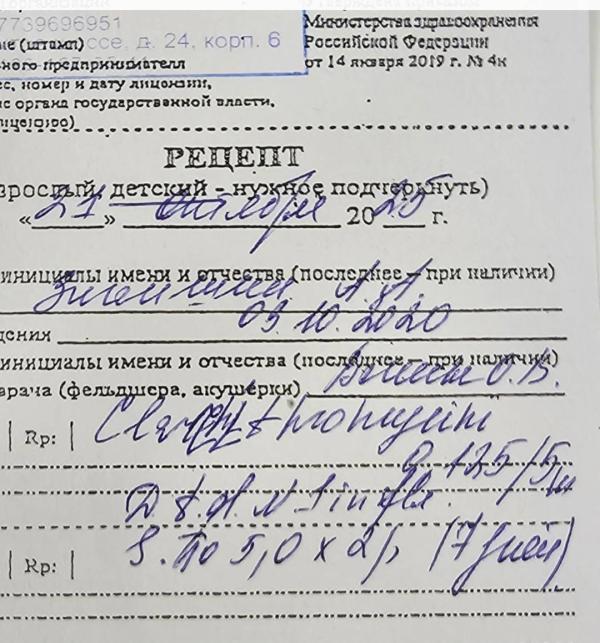 7739696951
Министерства здравоохранения
ие (штамп) ссе, д. 24, корп. 6
Российской Федерации
ного предпринимателя
от 14 января 2019 г. № 4н
с, номер и дату лицензии,
е органа государственной власти,
РЕЦЕПТ
зрослый, детский - нужное подчеркнуть)
«21» октября 2025 г.
инициалы имени и отчества (последнее – при наличии)
А.А.
дения 03.10.2020
инициалы имени и отчества (последнее – при наличии)
врача (фельдшера, акушерки) О.В.
Rp: Clarithromycini
0,125/5
D.t.d. N 1 in fl.
Rp: S. По 5,0 х 2 р (7 дней)